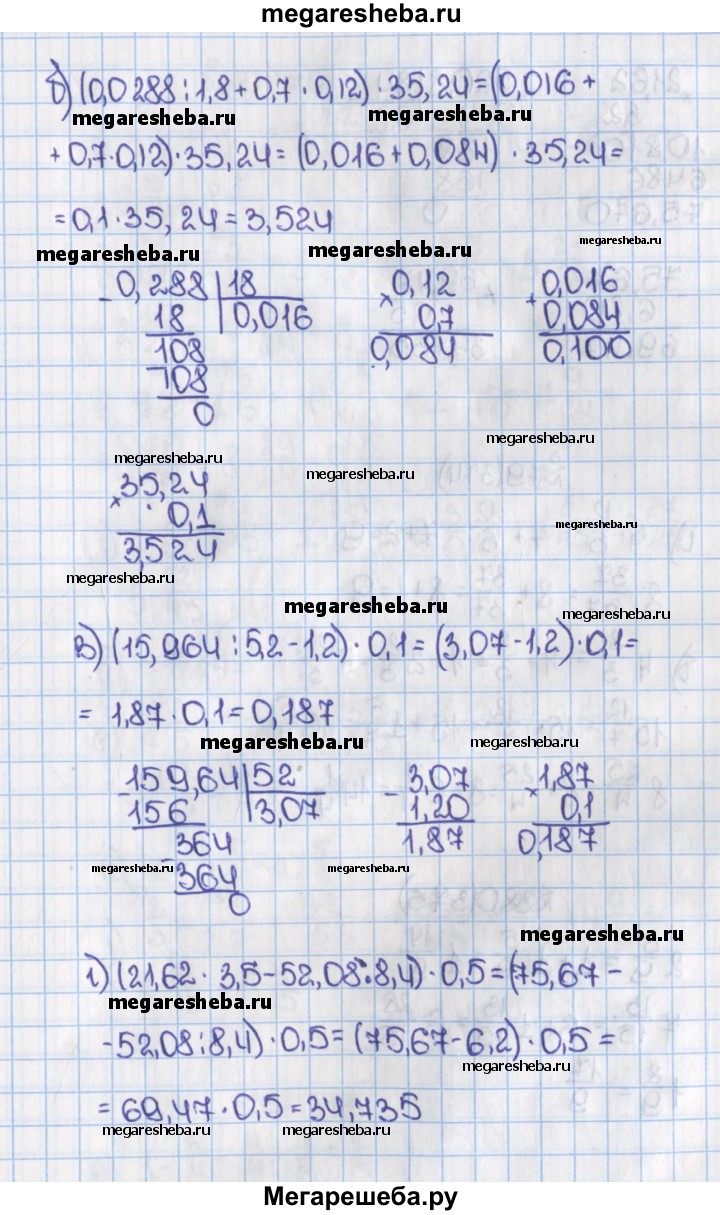 megaresheba.ru
б) (0,0288:1,8+0,7·0,12)·35,24=(0,016+
megaresheba.ru megaresheba.ru
+0,7·0,12)·35,24=(0,016+0,084)·35,24=
=0,1·35,24=3,524
megaresheba.ru megaresheba.ru megaresheba.ru
- 0,288 | 18 × 0,12 + 0,016
18 | 0,016 0,7 0,084
108 0,084 0,100
- 108
0
megaresheba.ru
megaresheba.ru megaresheba.ru
× 35,24
0,1 megaresheba.ru
3,524
megaresheba.ru
megaresheba.ru megaresheba.ru
в) (15,964:5,2-1,2)·0,1=(3,07-1,2)·0,1=
=1,87·0,1=0,187
megaresheba.ru megaresheba.ru
- 159,64 | 52 - 3,07 × 1,87
156 | 3,07 1,20 0,1
- 364 1,87 0,187
megaresheba.ru megaresheba.ru megaresheba.ru
364
0
megaresheba.ru
г) (21,62·3,5-52,08:8,4)·0,5=(75,67-
megaresheba.ru
-52,08:8,4)·0,5=(75,67-6,2)·0,5=
megaresheba.ru
=69,47·0,5=34,735
megaresheba.ru megaresheba.ru
Мегарешеба.ру